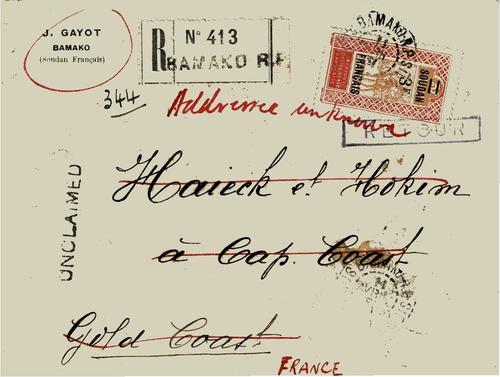 J. GAYOT
BAMAKO
(Soudan Français)
R N° 413
BAMAKO R.P.
BAMAKO R.P.
SOUDAN
FRANÇAIS
344
Addressee unknown
RETOUR
UNCLAIMED
Haieck et Hokim
à Cap. Coast
Gold Coast
FRANCE